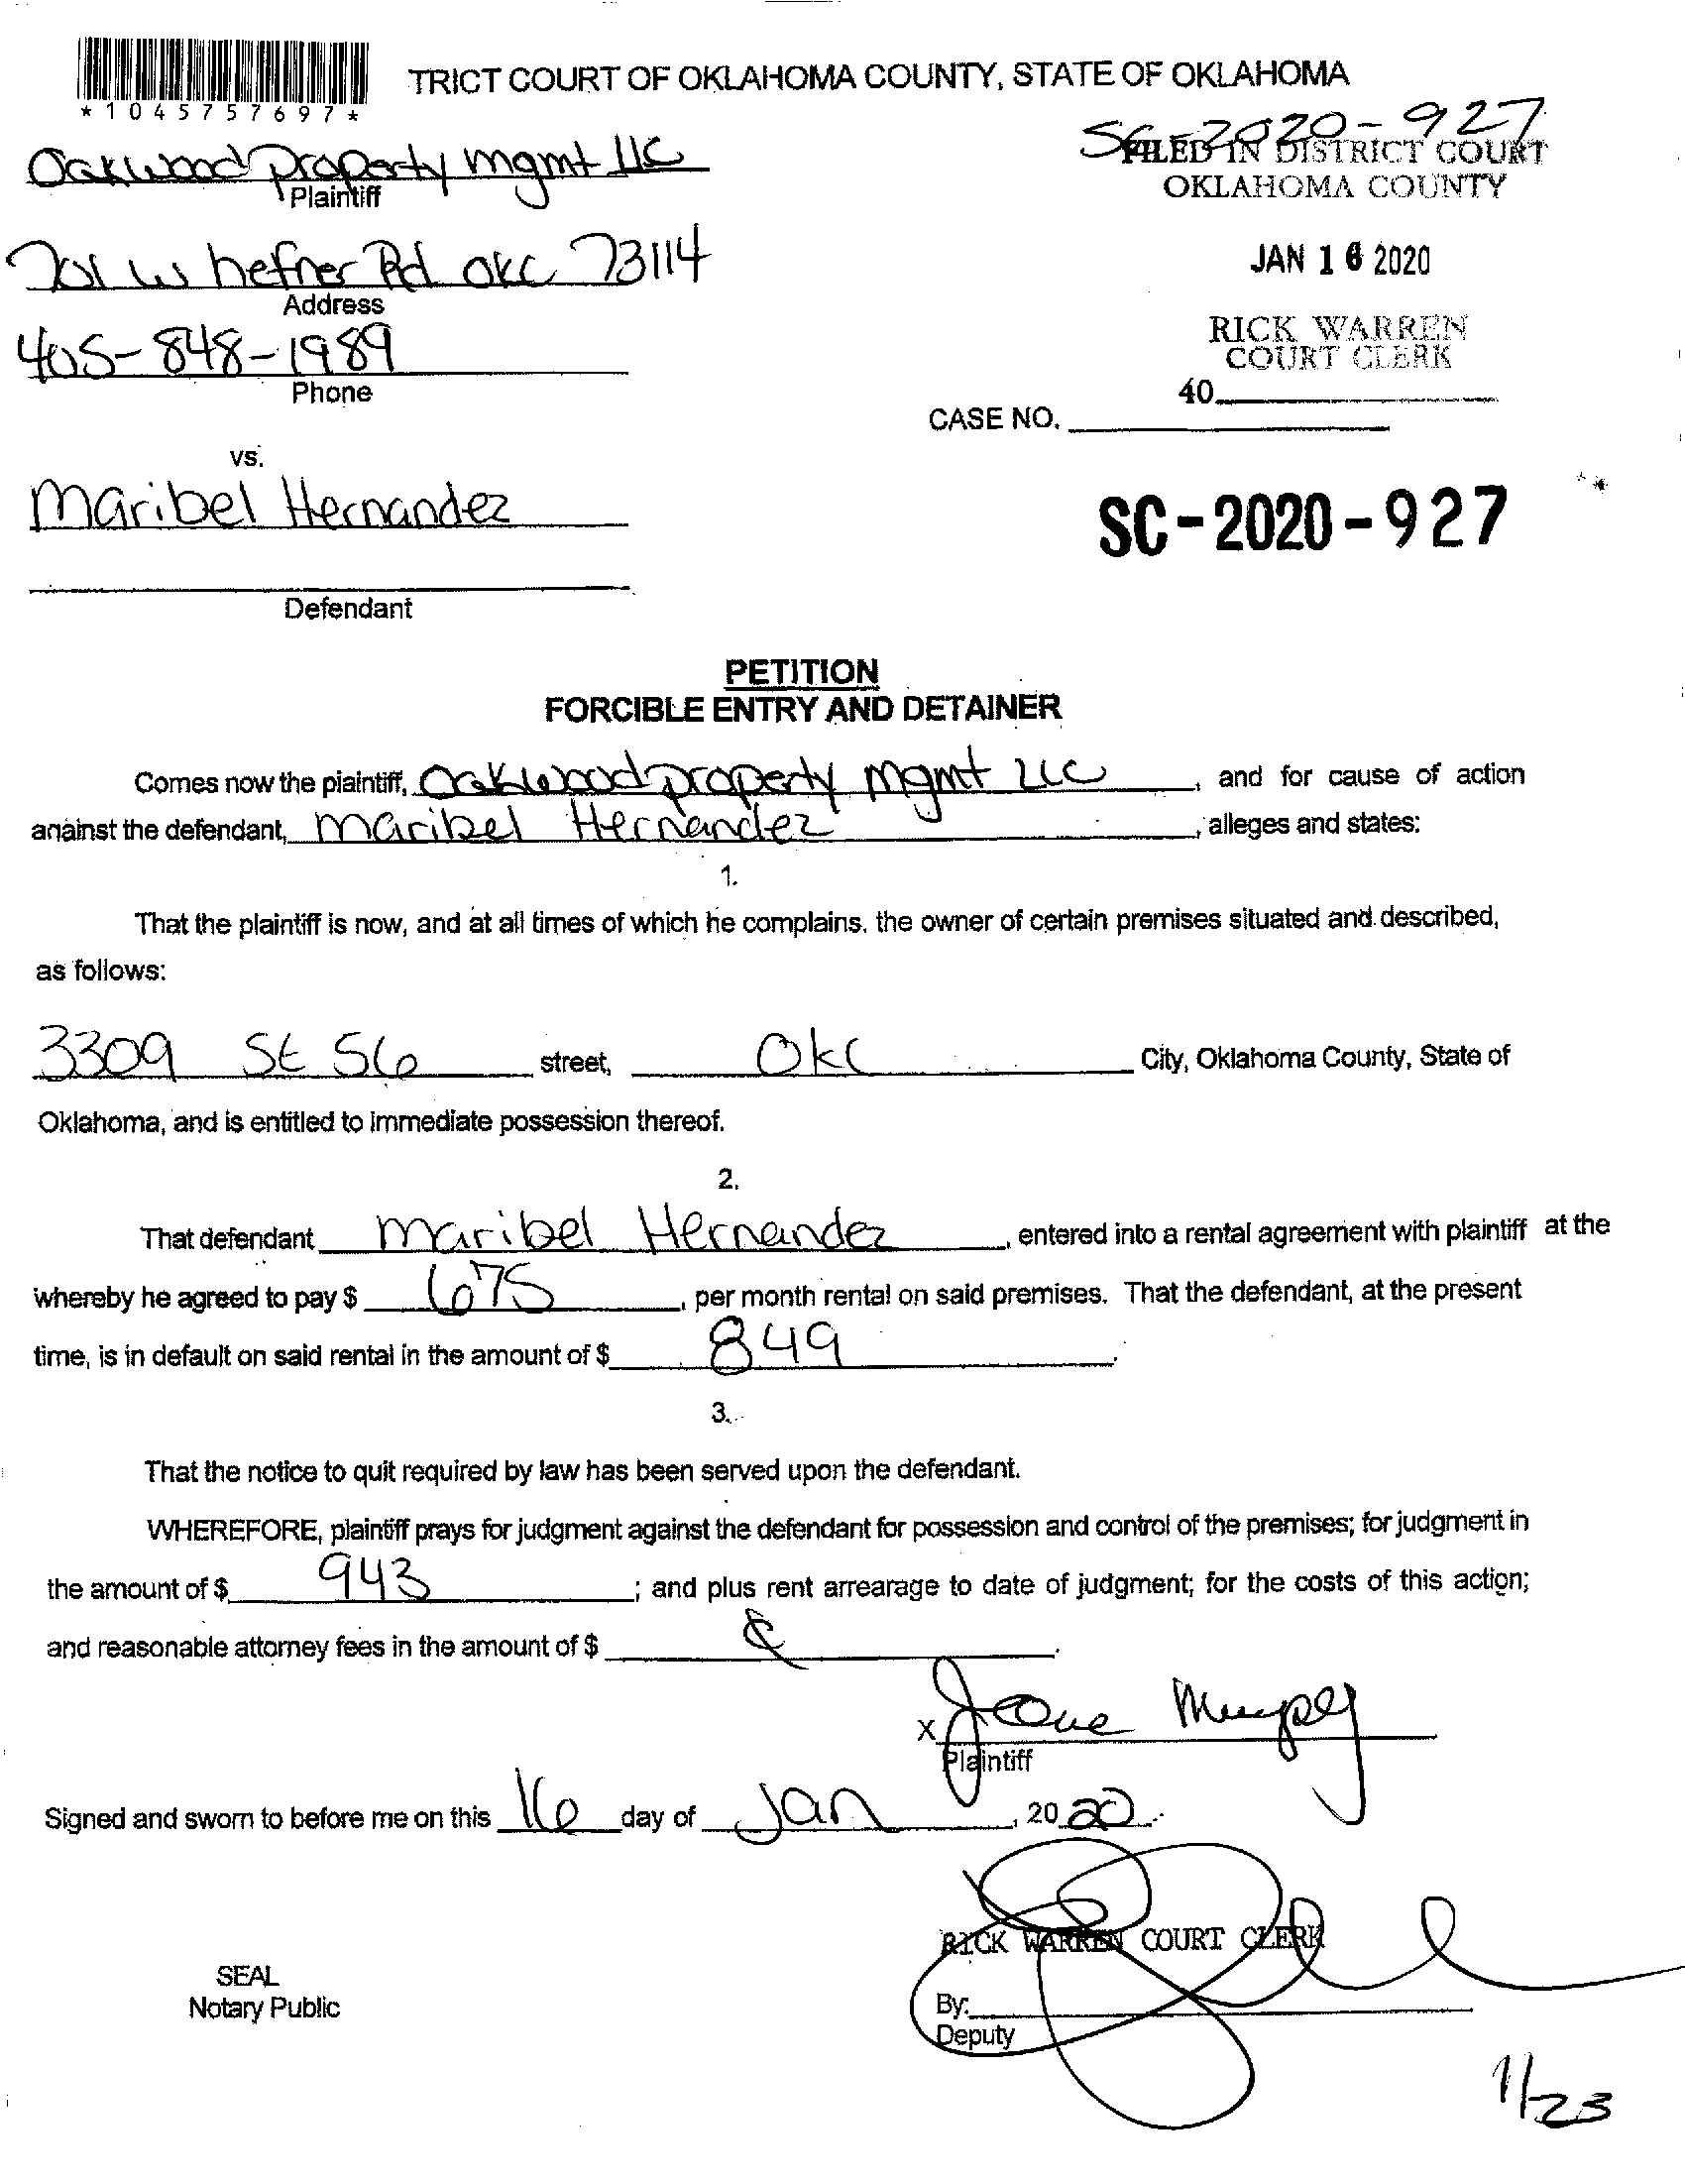 TRICT COURT OF OKLAHOMA COUNTY, STATE OF OKLAHOMA
*1045757697*
SC-2020-927
Oakwood Property mgmt LLC
Plaintiff
FILED IN DISTRICT COURT
OKLAHOMA COUNTY
701 W hefner Rd OKC 73114
Address
JAN 16 2020
405-848-1989
Phone
RICK WARREN
COURT CLERK
40
CASE NO.
vs.
Maribel Hernandez
SC-2020-927
Defendant
PETITION
FORCIBLE ENTRY AND DETAINER
Comes now the plaintiff, Oakwood property mgmt LLC, and for cause of action
against the defendant, Maribel Hernandez, alleges and states:
1.
That the plaintiff is now, and at all times of which he complains, the owner of certain premises situated and described,
as follows:
3309 St 56 street, OKC City, Oklahoma County, State of
Oklahoma, and is entitled to immediate possession thereof.
2.
That defendant Maribel Hernandez, entered into a rental agreement with plaintiff at the
whereby he agreed to pay $ 675, per month rental on said premises. That the defendant, at the present
time, is in default on said rental in the amount of $ 849.
3.
That the notice to quit required by law has been served upon the defendant.
WHEREFORE, plaintiff prays for judgment against the defendant for possession and control of the premises; for judgment in
the amount of $ 943; and plus rent arrearage to date of judgment; for the costs of this action;
and reasonable attorney fees in the amount of $ .
X
Plaintiff
Signed and sworn to before me on this 16 day of Jan, 2020.
RICK WARREN COURT CLERK
SEAL
Notary Public
By:
Deputy
1/23